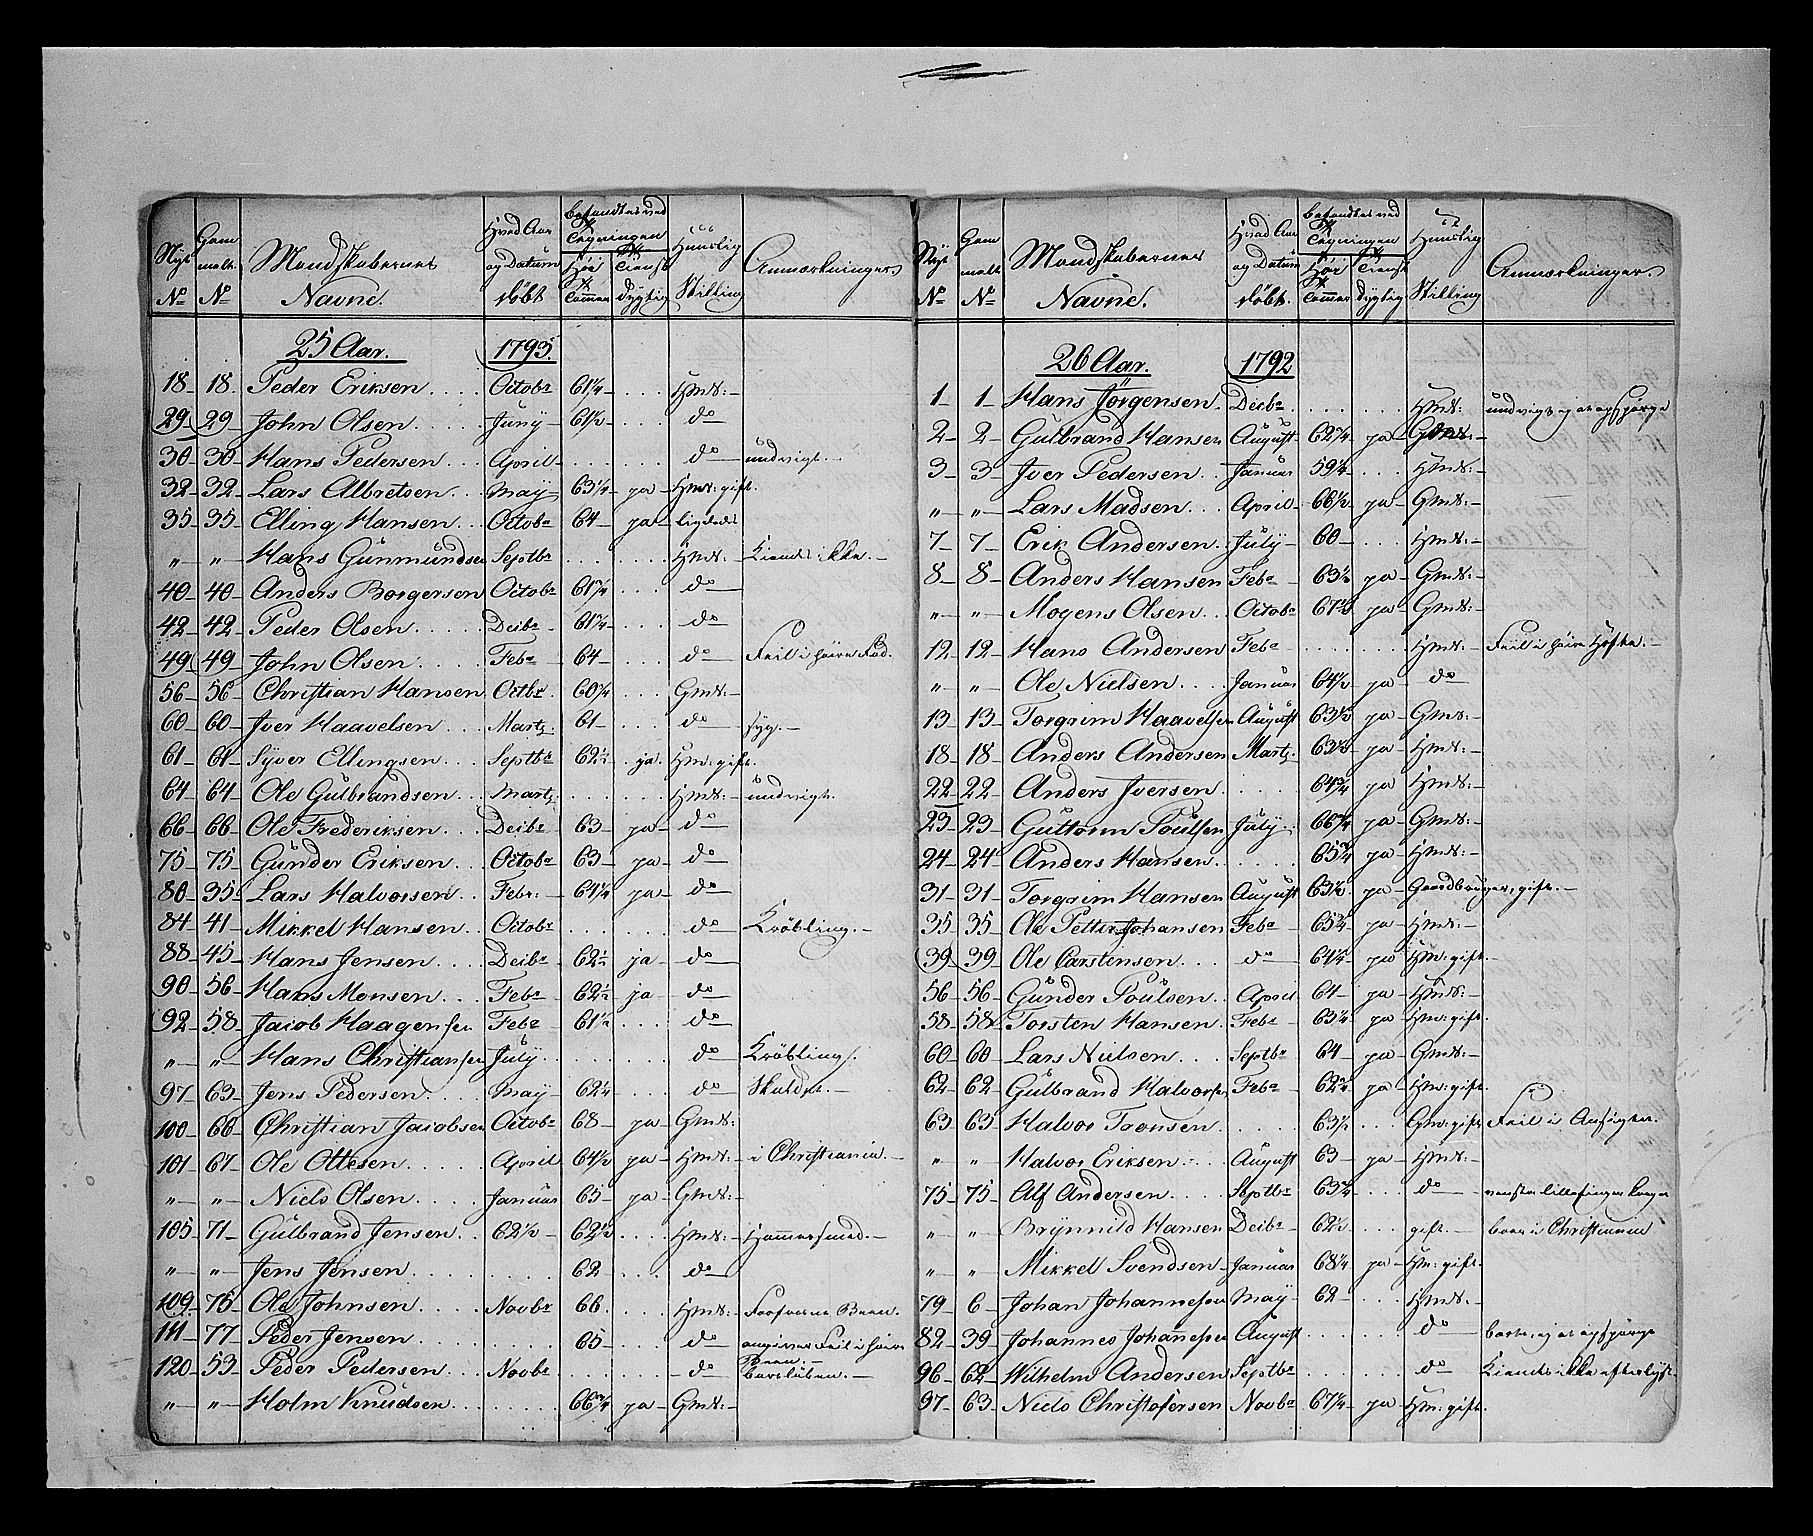 Nye No | Gamle No | Mandskabernes Navne. | Hvad Aar og Datum døbt | befandtes ved Tegningen Høi Tommer | Tienst dygtig | Huuslig Stilling | Anmærkninger.
25 Aar. 1793.
18 18. Peder Eriksen .... Octobr 61¼ ... Hmd:
29 29 John Olsen .... Juny 61½ ... do
30 30 Hans Pedersen April ... do undvigt.
32 32 Lars Albretsen .. May 63¼ ja Hmd: gift.
35 35 Elling Hansen .. Octobr 64 ja ligeledes
" " Hans Gunmundsen Septbr ... Hmd: Kiendes ikke.
40 40 Anders Borgersen Octobr 61¼ ... do
42 42 Peder Olsen .... Deibr 61¼ ... do
49 49 John Olsen .... Febr 64 ... do Feil i høire Fod.
56 56 Christian Hansen Octbr. 60¼ ... Gmd:
60 60 Iver Haavelsen Marts. 61 ... do syg.
61 61 Syver Ellingsen Septbr 62½ ja. Hm: gift.
64 64 Ole Gulbrandsen Marts ... Hmd: undvigt.
66 66 Ole Frederiksen .. Deibr 63 ja do
75 75 Gunder Eriksen .. Octobr 63 ja do
80 35 Lars Halvorsen .. Febr: 61¼ ja do
84 41 Mikkel Hansen .. Octobr ... do Krøbling.
88 45 Hans Jensen .... Deibr 62½ ja do
90 56 Hans Monsen ... Febr 62½ ja do
92 58 Jacob Haagensen Febr 61½ ... do
" " Hans Christiansen July ... do Krøbling.
97 63 Jens Pedersen .. May 62¼ do Skaldet.
100 66 Christian Jacobsen Octobr 68 ja Gmd:
101 67 Ole Ottesen .... April 64½ ja Hmd: i Christiania.
" " Niels Olsen .... Januar 65 ja Gmd:
105 71 Gulbrand Jensen 62½ 62½ ... Hmd: Hammersmed.
" " Jens Jensen .... 62 ... do
109. 75 Ole Johnsen ... Novbr 66. ... Hmd: Forfrosne Been.
111 77 Peder Jensen .... 65 ... do angiver Feil i høire Been.
120 53 Peder Pedersen .. Novbr ... do
" " Holm Knudsen .... 66¾ ja Gmd:
Nye No | Gamle No | Mandskabernes Navne. | Hvad Aar og Datum døbt. | befandtes ved Tegningen Høi Tommer | Tienst dygtig | Huuslig Stilling | Anmærkninger.
26 Aar. 1792
1 1 Hans Jørgensen Deibr ... Hmd: undvigt ej at opspørge
2 2 Gulbrand Hansen August 62¼ ja Gmd:
3 3 Iver Pedersen .. Januar 59¼ ... Hmd:
" " Lars Madsen ... April 66½ ja Gmd:
7 7 Erik Andersen. July 60 ... Hmd:
8 8 Anders Hansen Febr 63½ ja Gmd:
" " Mogens Olsen .. Octobr 67½ ja Gmd:
12 12 Hans Andersen Febr ... Hmd: Feil i høire Hofte.
" " Ole Nielsen .... Januar 64½ ja do
13 13 Torgrim Haavelsen August 63½ ja Gmd:
18 18 Anders Andersen Marts. 63½ ja Hmd:
22 22 Anders Iversen .... 64¾ ja Hmd:
23 23 Guttorm Poulsen July 66¼ ja Gmd:
24 24 Anders Hansen .... 65¼ ja Hmd:
31 31 Torgrim Hansen August 63½ ja Gaardbruger, gift.
35 35 Ole Petter Johansen Febr 65¼ ja Hmd:
39 39 Ole Carstensen ... do 64¼ ja Hm: gift.
56 56 Gunder Poulsen .. April 64 ja Hmd:
58 58 Torsten Hansen . Febr 63¼ ja Hm: gift.
60 60 Lars Nielsen ... Septbr 64 ja Gmd:
62 62 Gulbrand Halvorsen Febr 62¼ ja Hm: gift.
63 63 Halvor Tronsen .... 63½ ... Gm: gift Feil i Ansigtet.
" " Halvor Eriksen .. August 63 ja Hmd:
75 75 Alf Andersen .... Septbr 63¼ ... do venstre lillefinger
" " Brynnild Hansen Deibr 62½ ... gift. boer i Christiania
" " Mikkel Svendsen Januar 68¼ ja Hm: gift.
79 6 Johan Johannesen May 62 ... Hmd:
82 39 Johannes Johannesen August ... do borte, ej at opspørge
96 62 Wilhelm Andersen Septbr ... do Kiendes ikke efterlyst.
97 63 Niels Christofersen Novbr 67¼ ja Hm: gift.